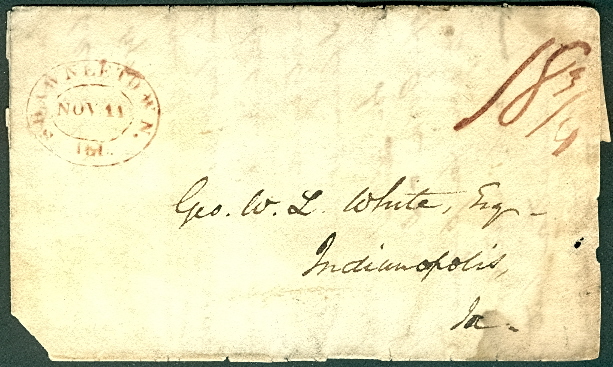 SHAWNEETOWN.
NOV 11
Ill.
18 3/4
Geo. W. L. White, Esq -
Indianopolis,
Ia -